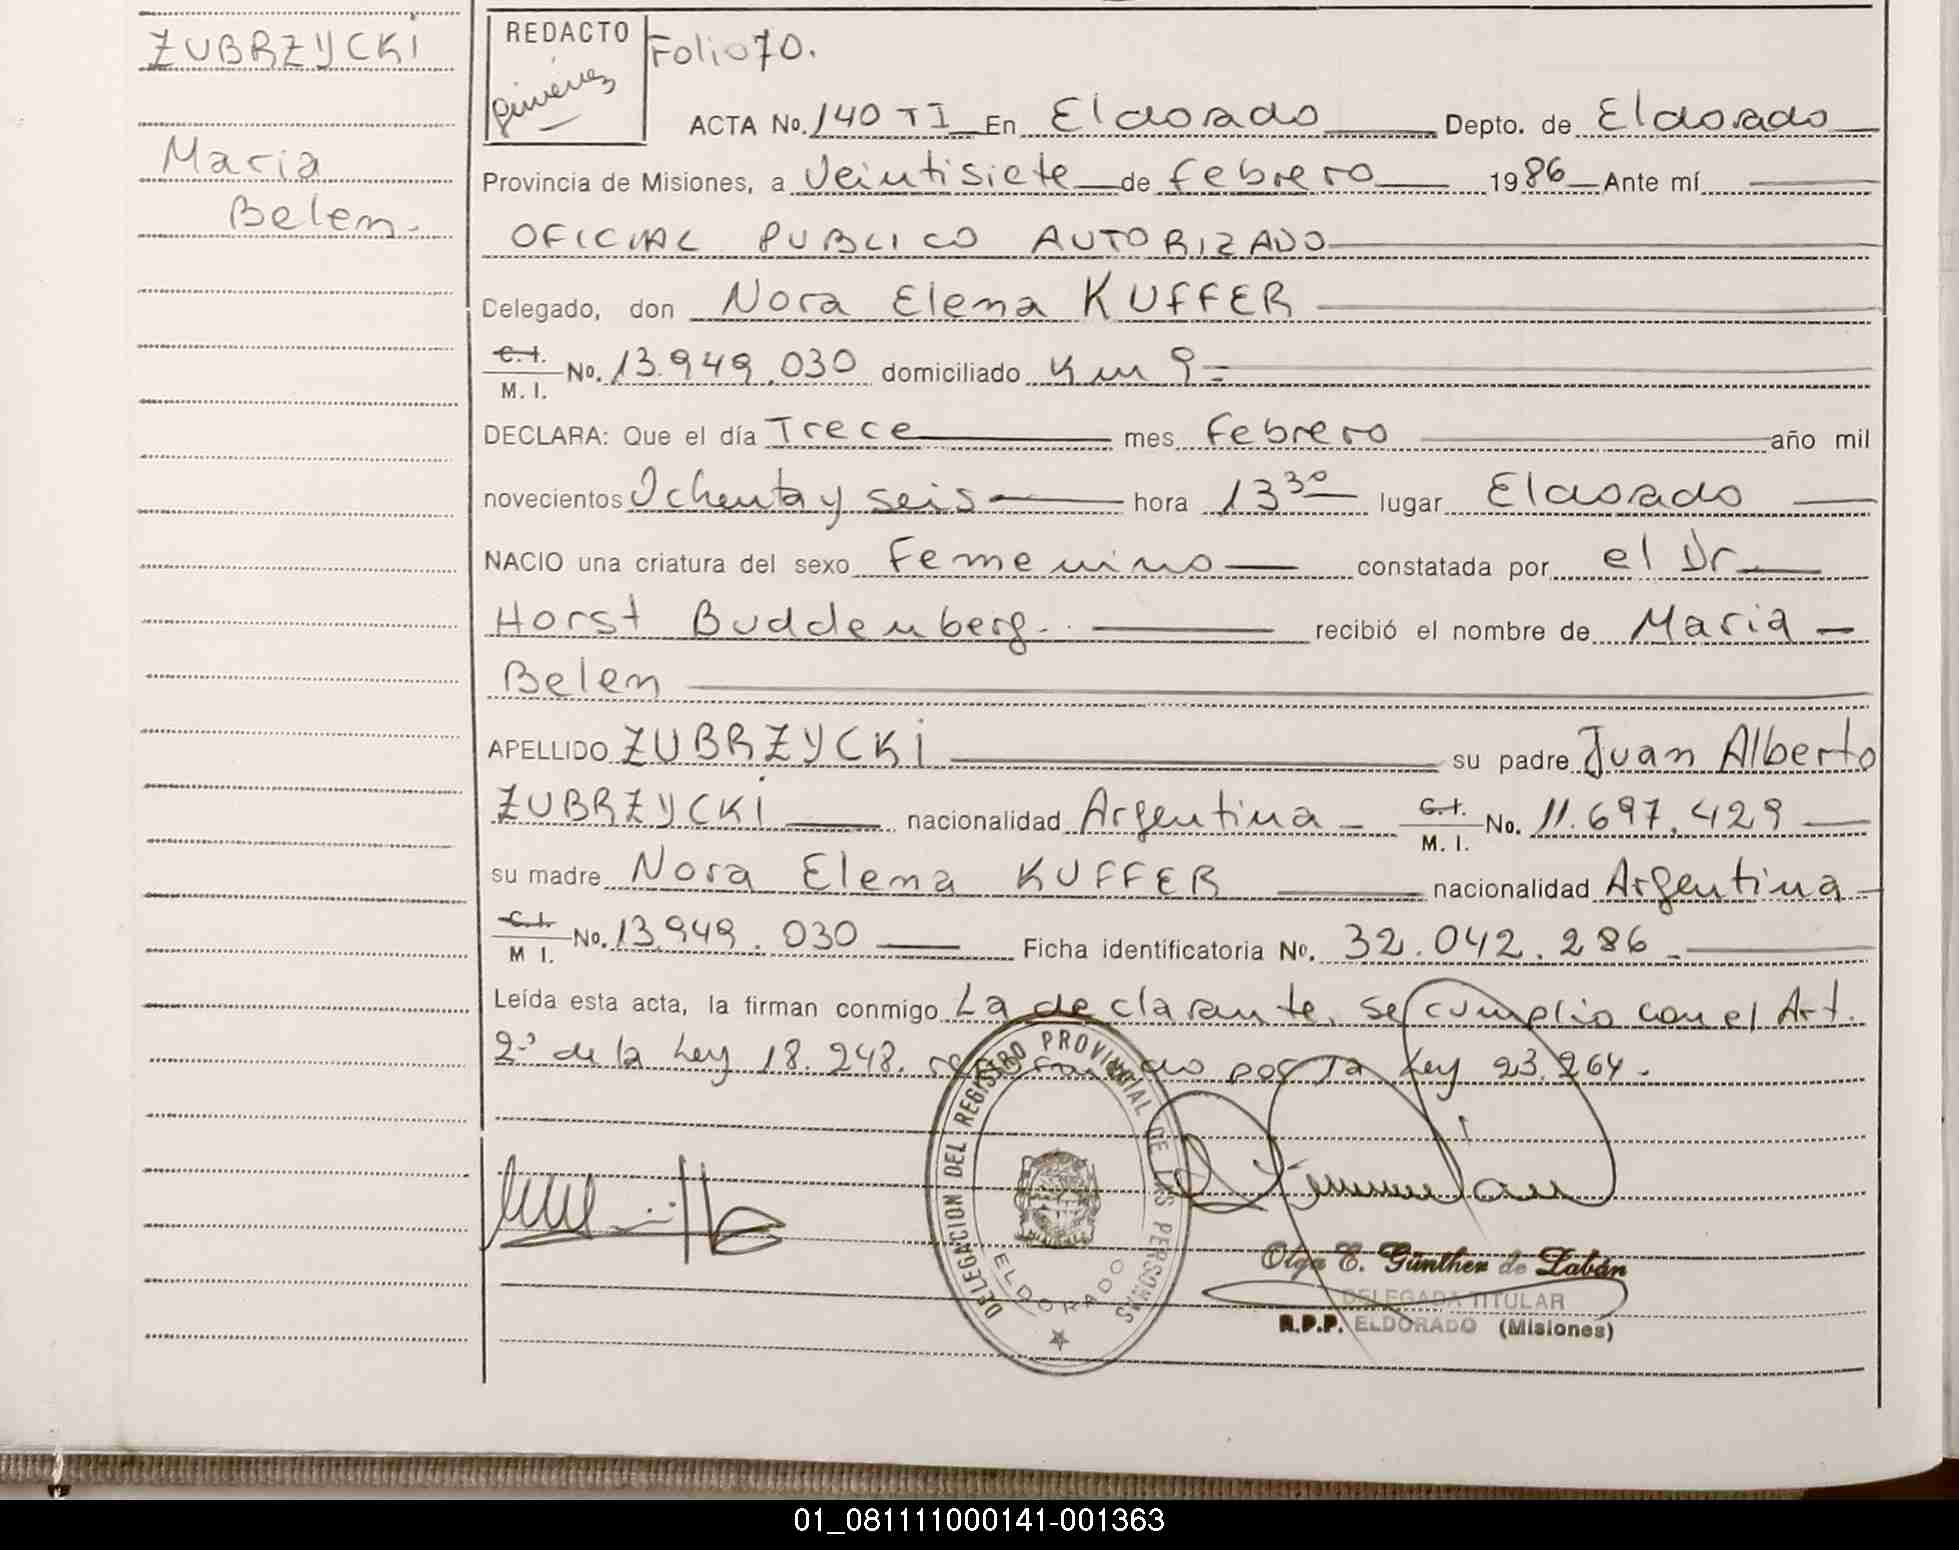 ZUBRZYCKI
Maria
Belen.
REDACTO
Giménez
Folio 70.
ACTA No. 140 TI En Eldorado Depto. de Eldorado
Provincia de Misiones, a Veintisiete de Febrero 1986 Ante mí
OFICIAL PUBLICO AUTORIZADO
Delegado, don Nora Elena KUFFER
C.I.
M. I. No. 13.949.030 domiciliado Km 9
DECLARA: Que el día Trece mes Febrero año mil
novecientos Ochenta y seis hora 13 30 lugar Eldorado
NACIO una criatura del sexo Femenino constatada por el Dr
Horst Buddenberg. recibió el nombre de Maria
Belen
APELLIDO ZUBRZYCKI su padre Juan Alberto
ZUBRZYCKI nacionalidad Argentina C.I.
M. I. No. 11.697.429
su madre Nora Elena KUFFER nacionalidad Argentina
C.I.
M I. No. 13.949.030 Ficha identificatoria No. 32.042.286
Leída esta acta, la firman conmigo La declarante, se cumplio con el Art.
2º de la Ley 18.248. por la Ley 23.264.
DELEGACION DEL REGISTRO PROVINCIAL DE LAS PERSONAS
ELDORADO
Olga E. Günther de Labán
DELEGADA TITULAR
R.P.P. ELDORADO (Misiones)
01_081111000141-001363